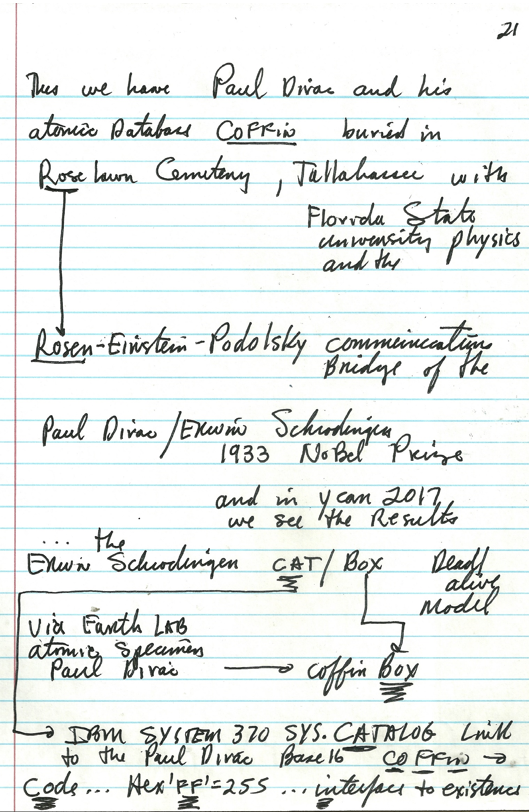 21
Thus we have Paul Dirac and his
atomic Database COFFin buried in
Roselawn Cemetery, Tallahassee with
Florida State
university physics
and the
Rosen-Einstein-Podolsky communications
Bridge of the
Paul Dirac/Erwin Schrodinger
1933 NoBel Prize
and in year 2017
we see the Results
... the
Erwin Schrodinger CAT/Box Dead/
alive
Model
Via Earth LAB
atomic Specimen
Paul Dirac → coffin Box
→ IBM SYSTEM 370 SYS. CATALOG Link
to the Paul Dirac Base16 COFFin →
Code... Hex'FF'=255 ... interface to existence